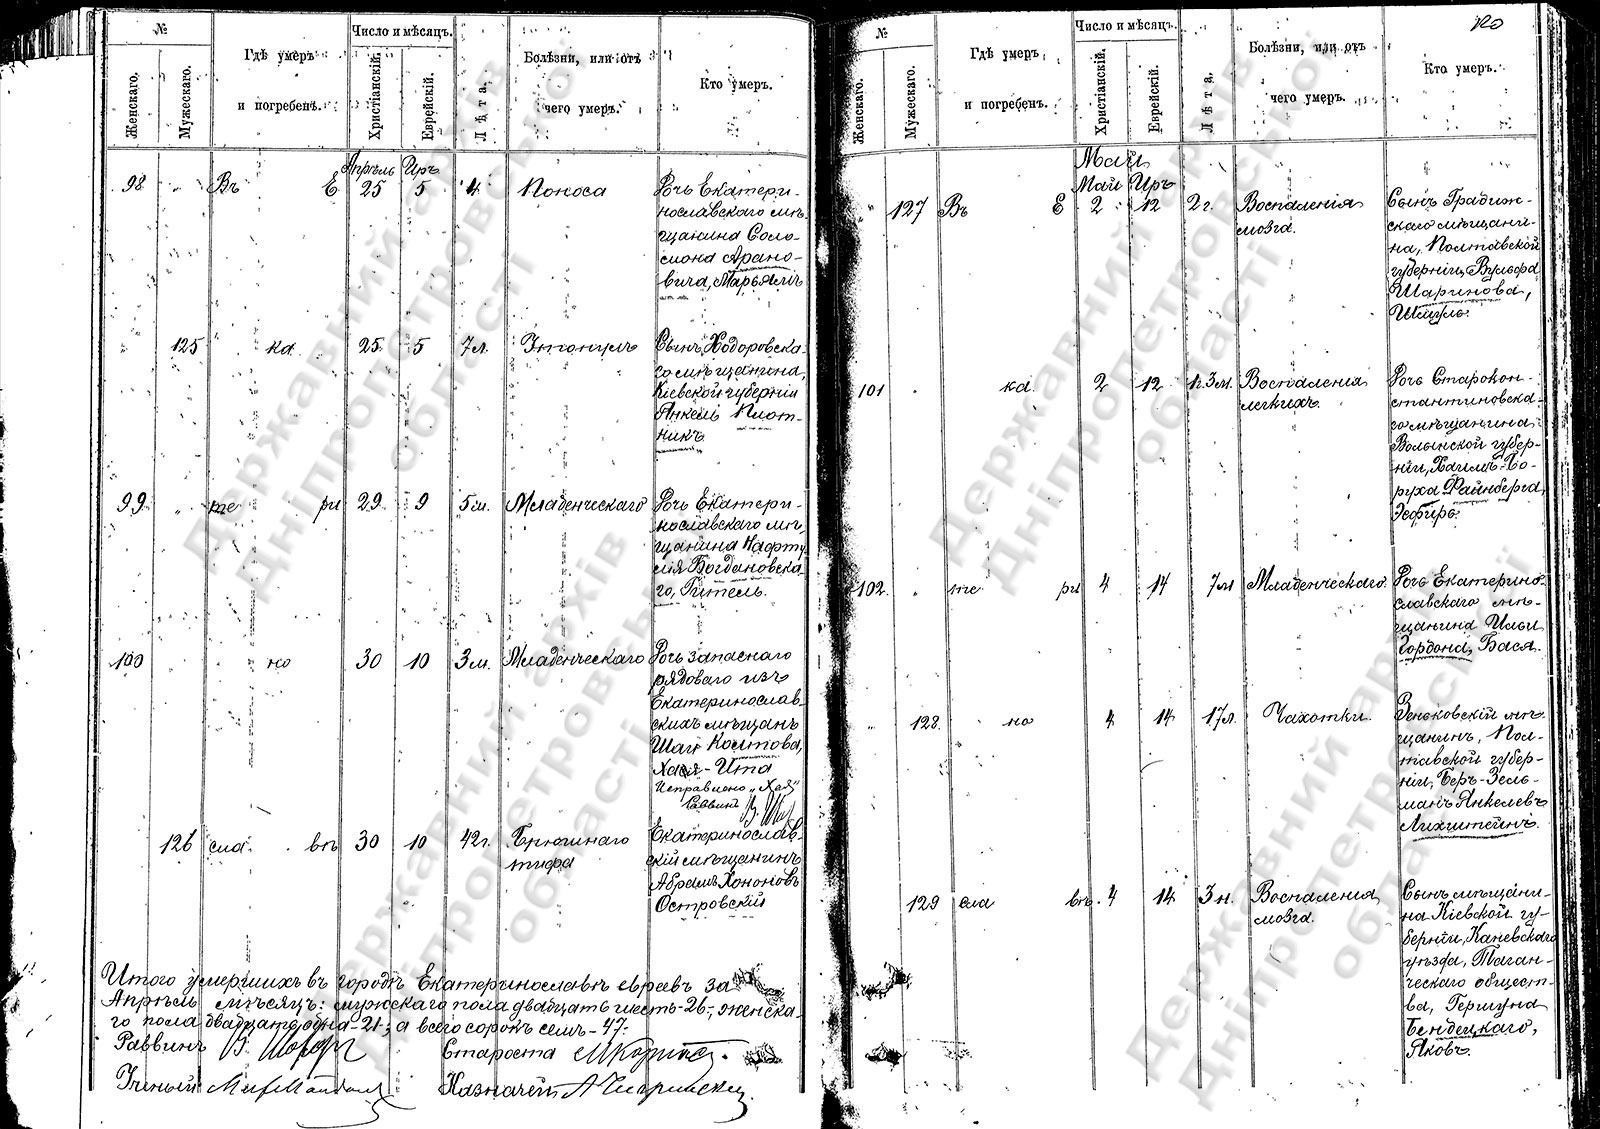 №
Женскаго.
Мужескаго.
Гдѣ умеръ
и погребенъ.
Число и мѣсяцъ.
Христіанскій.
Еврейскій.
Лѣта.
Болѣзни, или отъ
чего умеръ.
Кто умеръ.
Апрѣль Иръ
98 Въ Е 25 5 4 Поноса
Дочь Екатери-
нославскаго мѣ-
щанина Соло-
мона Арано-
вича, Марьямъ
125 ка 25 5 7л.
Сынъ Ходоровска-
го мѣщанина,
Кіевской губерніи
Янкель Плот-
никъ
99 те ри 29 9 5м. Младенческаго
Дочь Екатери-
нославскаго мѣ-
щанина Нафту-
лія Богдановска-
го, Гитель.
100 но 30 10 3м. Младенческаго
Дочь запаснаго
рядоваго изъ
Екатеринослав-
скихъ мѣщанъ
Шаи Колтова,
Хая-Ита
Исправлено „Хая"
Раввинъ
126 сла въ 30 10 42г. Брюшнаго
тифа
Екатеринослав-
скій мѣщанинъ
Абрамъ Хононовъ
Островскій
Итого умершихъ въ городѣ Екатеринославѣ евреевъ за
Апрѣль мѣсяцъ: мужскаго пола двадцать шесть-26-, женска-
го пола двадцать одна-21-, а всего сорокъ семь-47-
Раввинъ Староста
Ученый Казначей
120
№
Женскаго.
Мужескаго.
Гдѣ умеръ
и погребенъ.
Число и мѣсяцъ.
Христіанскій.
Еврейскій.
Лѣта.
Болѣзни, или отъ
чего умеръ.
Кто умеръ.
Май
Май Иръ
127 Въ Е 2 12 2г. Воспаленія
мозга.
Сынъ Градиж-
скаго мѣщани-
на, Полтавской
губерніи, Вульфа
Шаринова,
Шмуль.
101 ка 2 12 1г.3м. Воспаленія
легкихъ.
Дочь Старокон-
стантиновска-
го мѣщанина
Волынской губер-
ніи, Хаимъ-Бо-
руха Файнберга,
Эсфирь.
102 те ри 4 14 7м Младенческаго
Дочь Екатерино-
славскаго мѣ-
щанина Ильи
Гордона, Бася.
128 но 4 14 17л. Чахотки.
Зеньковскій мѣ-
щанинъ, Пол-
тавской губер-
ніи, Беръ-Зель-
манъ Янкелевъ
Лихтштейнъ.
129 сла въ 4 14 3н. Воспаленія
мозга.
Сынъ мѣщани-
на Кіевской гу-
берніи, Каневскаго
уѣзда, Таган-
ческаго общест-
ва, Гершуна
Бендецкаго,
Яковъ.
Державний архів
Дніпропетровської
області